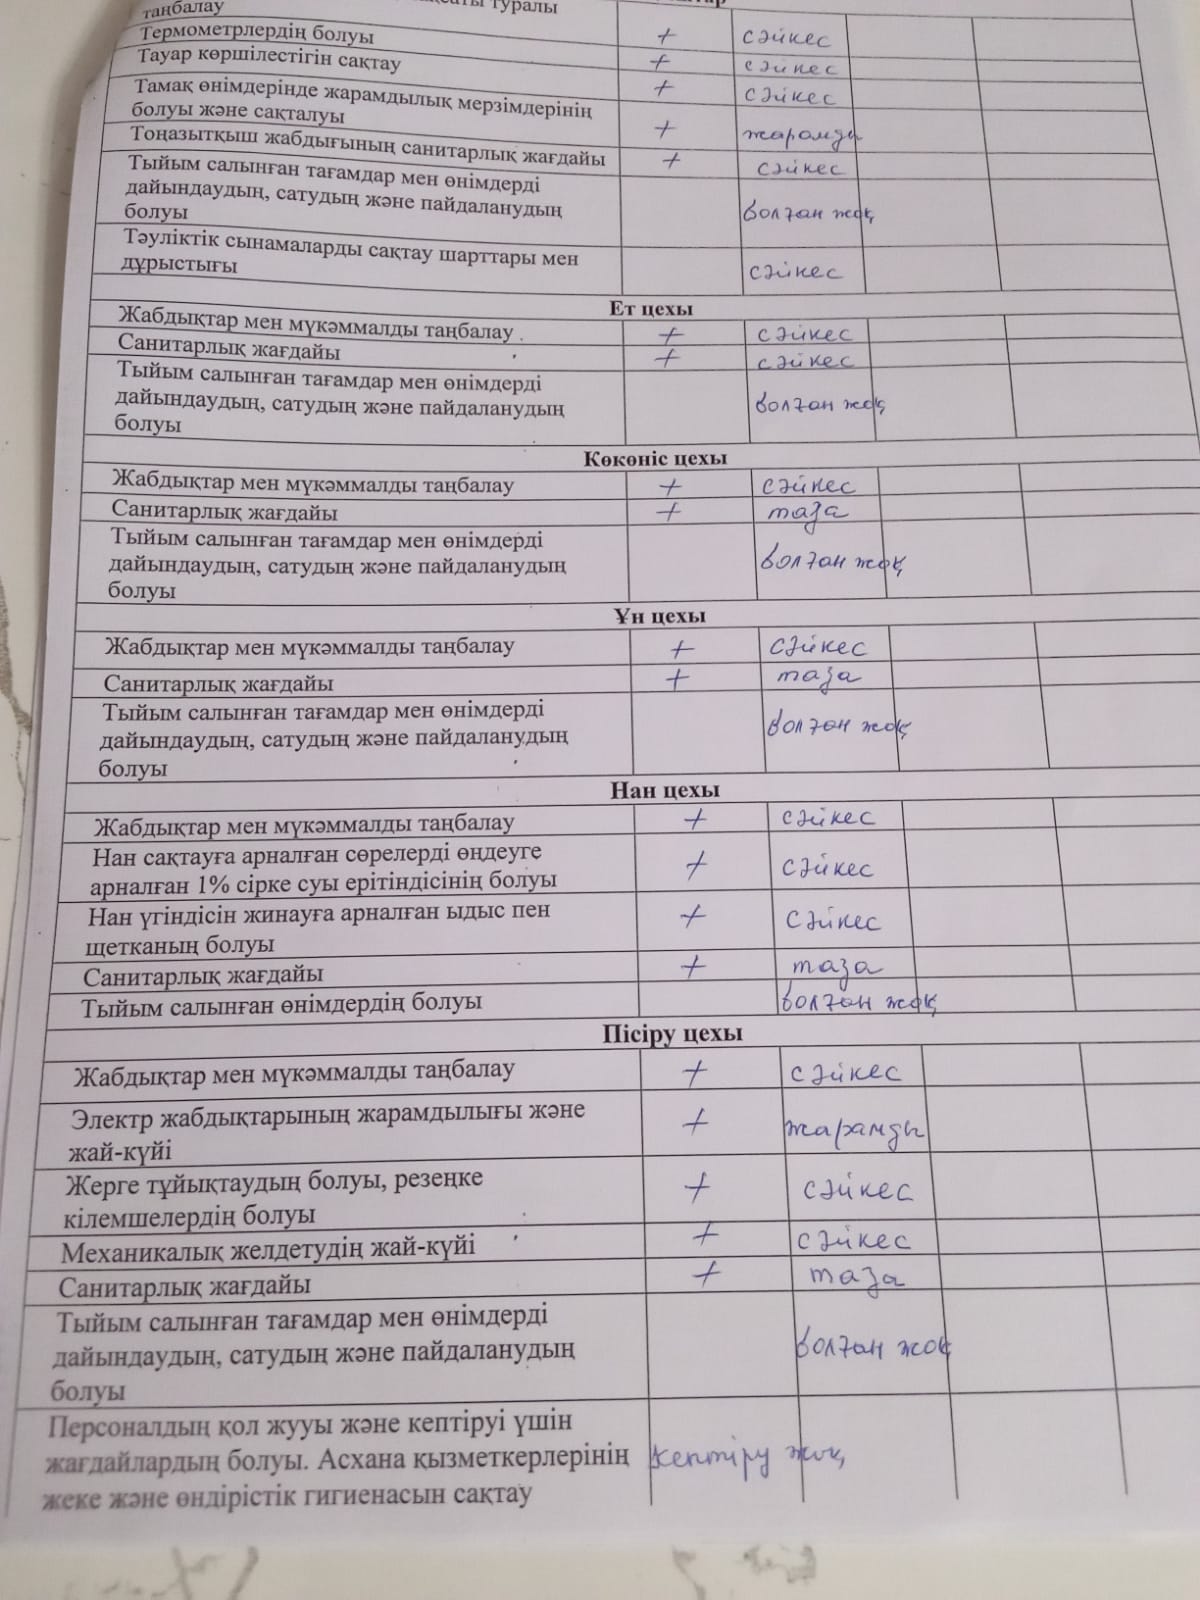 туралы
таңбалау
Термометрлердің болуы + сәйкес
Тауар көршілестігін сақтау + сәйкес
Тамақ өнімдерінде жарамдылық мерзімдерінің + сәйкес
болуы және сақталуы
Тоңазытқыш жабдығының санитарлық жағдайы + жарамды
+ сәйкес
Тыйым салынған тағамдар мен өнімдерді
дайындаудың, сатудың және пайдаланудың болған жоқ
болуы
Тәуліктік сынамаларды сақтау шарттары мен
дұрыстығы сәйкес
Ет цехы
Жабдықтар мен мүкәммалды таңбалау + сәйкес
Санитарлық жағдайы + сәйкес
Тыйым салынған тағамдар мен өнімдерді
дайындаудың, сатудың және пайдаланудың болған жоқ
болуы
Көкөніс цехы
Жабдықтар мен мүкәммалды таңбалау + сәйкес
Санитарлық жағдайы + таза
Тыйым салынған тағамдар мен өнімдерді
дайындаудың, сатудың және пайдаланудың болған жоқ
болуы
Ұн цехы
Жабдықтар мен мүкәммалды таңбалау + сәйкес
Санитарлық жағдайы + таза
Тыйым салынған тағамдар мен өнімдерді
дайындаудың, сатудың және пайдаланудың болған жоқ
болуы
Нан цехы
Жабдықтар мен мүкәммалды таңбалау + сәйкес
Нан сақтауға арналған сөрелерді өңдеуге
арналған 1% сірке суы ерітіндісінің болуы + сәйкес
Нан үгіндісін жинауға арналған ыдыс пен + сәйкес
щетканың болуы
Санитарлық жағдайы + таза
Тыйым салынған өнімдердің болуы болған жоқ
Пісіру цехы
Жабдықтар мен мүкәммалды таңбалау + сәйкес
Электр жабдықтарының жарамдылығы және + жарамды
жай-күйі
Жерге тұйықтаудың болуы, резеңке + сәйкес
кілемшелердің болуы
Механикалық желдетудің жай-күйі + сәйкес
Санитарлық жағдайы + таза
Тыйым салынған тағамдар мен өнімдерді
дайындаудың, сатудың және пайдаланудың болған жоқ
болуы
Персоналдың қол жууы және кептіруі үшін
жағдайлардың болуы. Асхана қызметкерлерінің кептіру жоқ
жеке және өндірістік гигиенасын сақтау